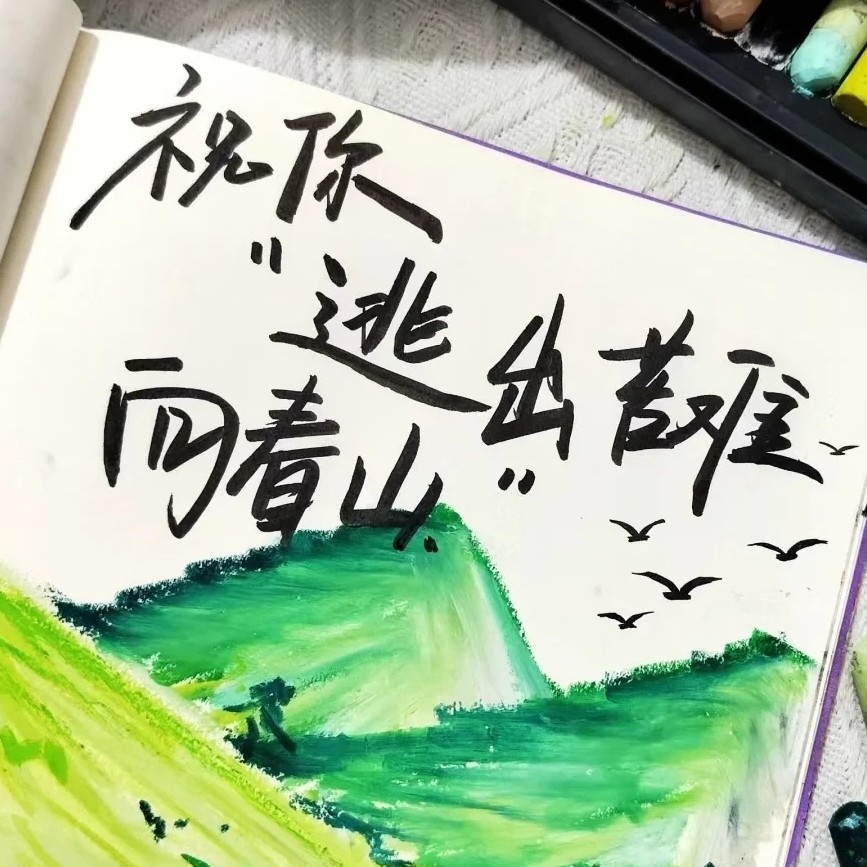 祝你
“逃出苦难
向春山。”